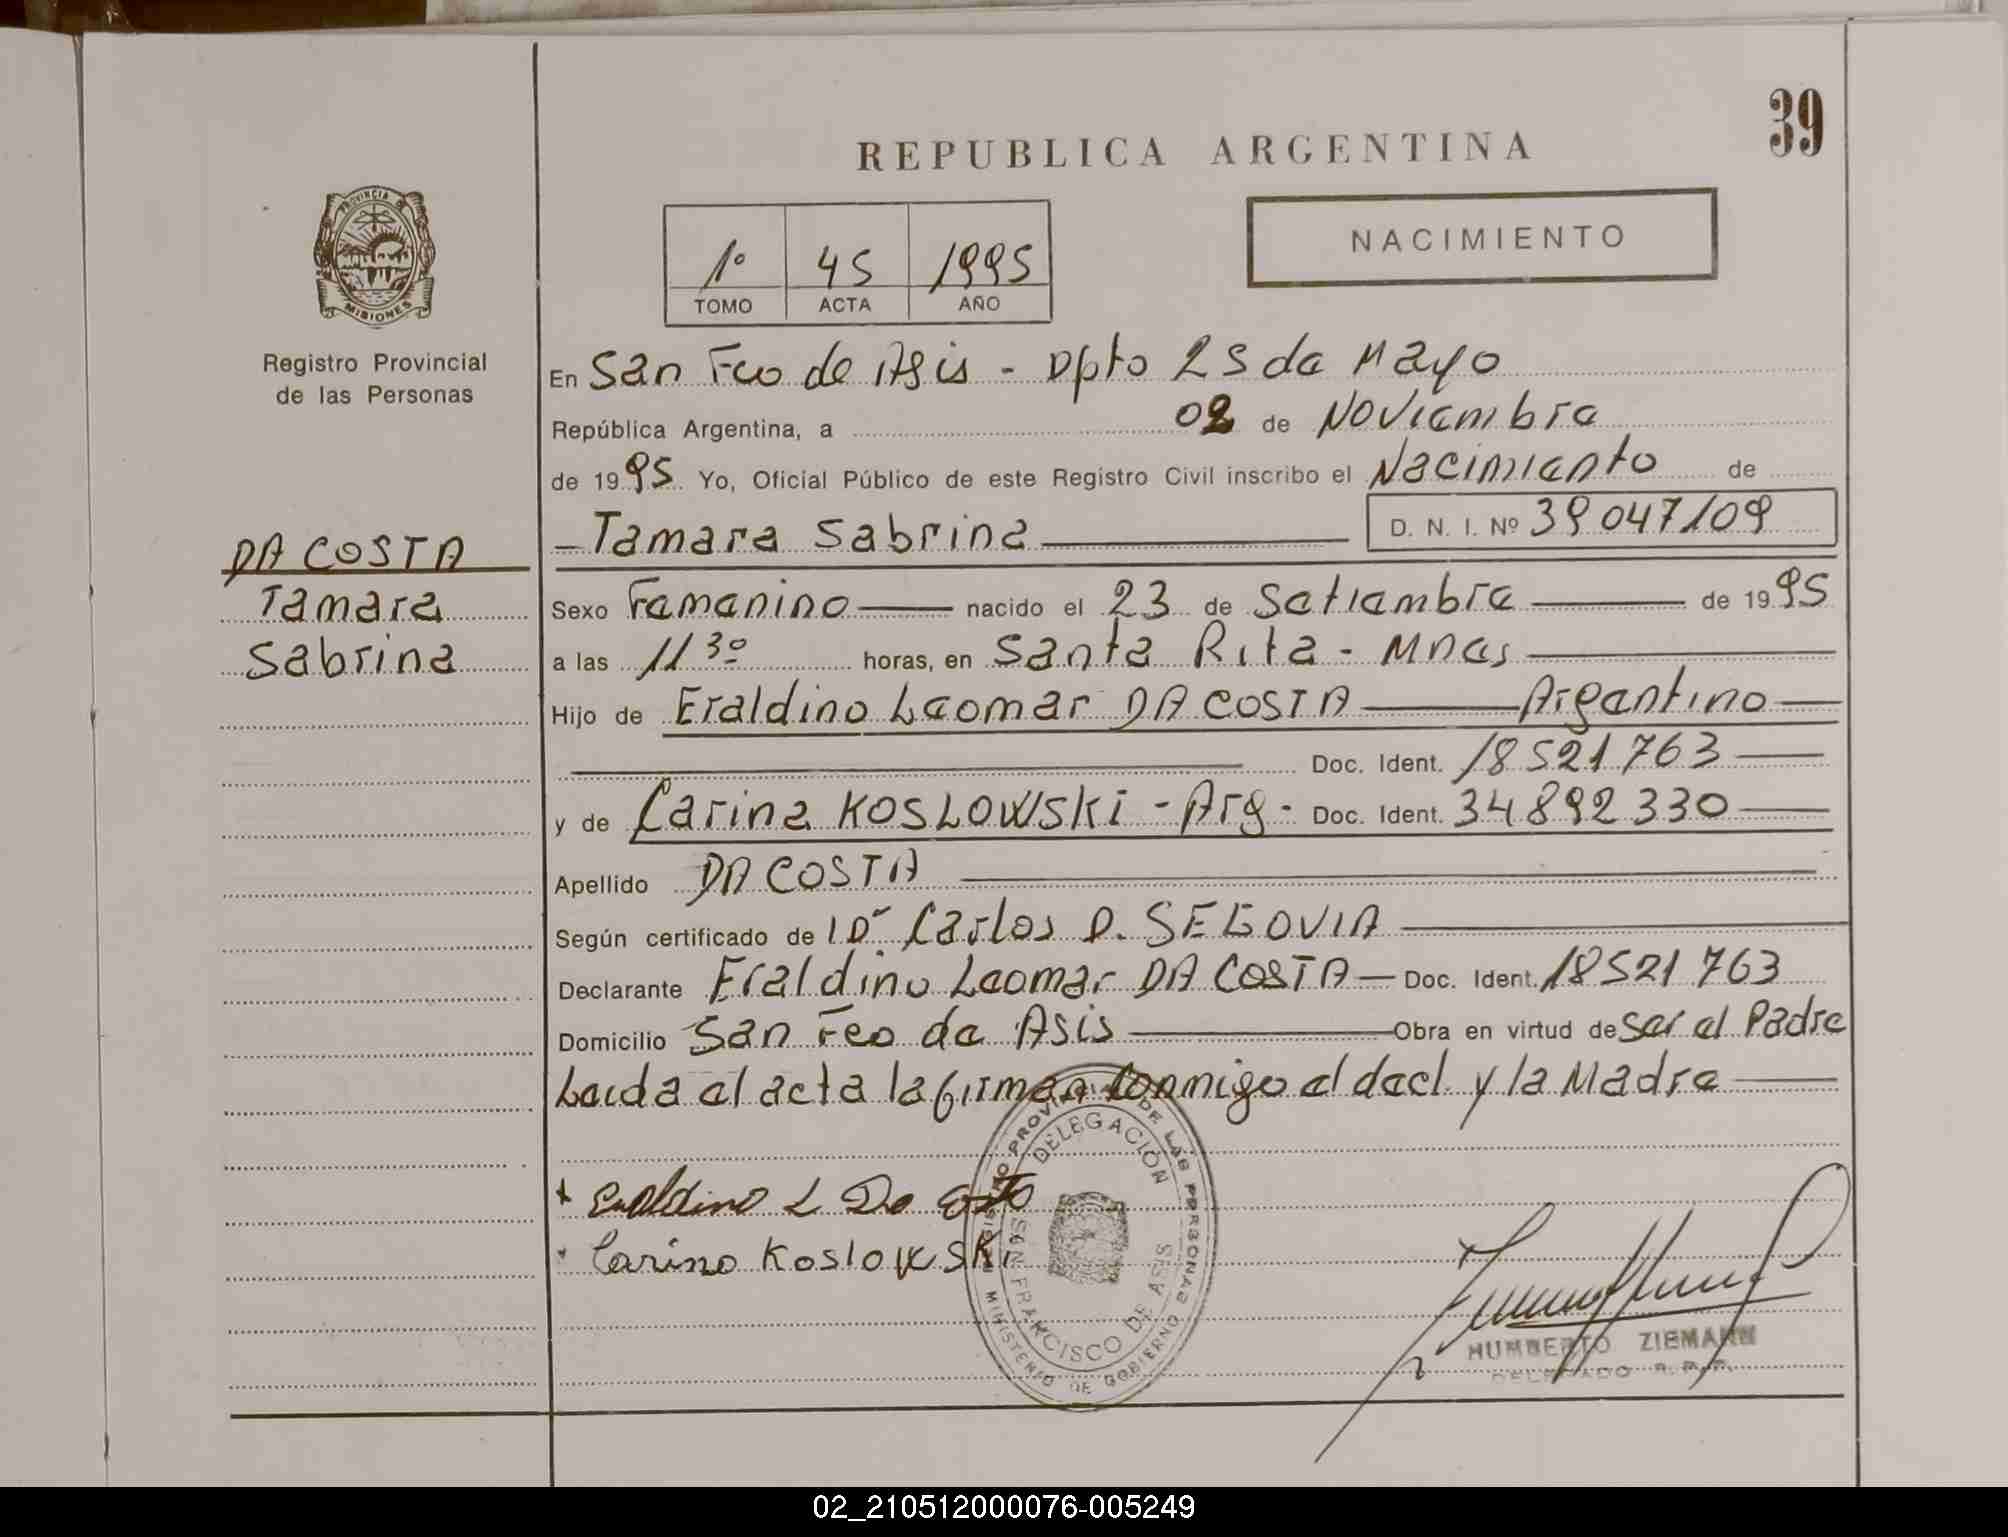 39
REPUBLICA ARGENTINA
NACIMIENTO
1º 45 1995
TOMO ACTA AÑO
PROVINCIA DE MISIONES
Registro Provincial
de las Personas
En San Fco de Asis - Dpto 25 de Mayo
República Argentina, a 02 de Noviembre
de 1995 Yo, Oficial Público de este Registro Civil inscribo el Nacimiento de
- Tamara Sabrina D. N. I. Nº 39 047109
DA COSTA
Tamara
Sabrina
Sexo Femenino nacido el 23 de Setiembre de 1995
a las 11 30 horas, en Santa Rita - Mnes
Hijo de Eraldino Leomar DA COSTA Argentino
Doc. Ident. 18 521 763
y de Carina KOSLOWSKi - Arg - Doc. Ident. 34 892 330
Apellido DA COSTA
Según certificado de Dr Carlos D. SEGOVIA
Declarante Eraldino Leomar DA COSTA - Doc. Ident. 18 521 763
Domicilio San Fco de Asis Obra en virtud de ser el Padre
Leida el acta la firman conmigo el decl. y la Madre
+ Eraldino L Da Costa
Carina Koslowski
REGISTRO PROVINCIAL DE LAS PERSONAS
DELEGACIÓN
SAN FRANCISCO DE ASIS
MINISTERIO DE GOBIERNO
HUMBERTO ZIEMANN
DELEGADO R.P.P.
02_210512000076-005249